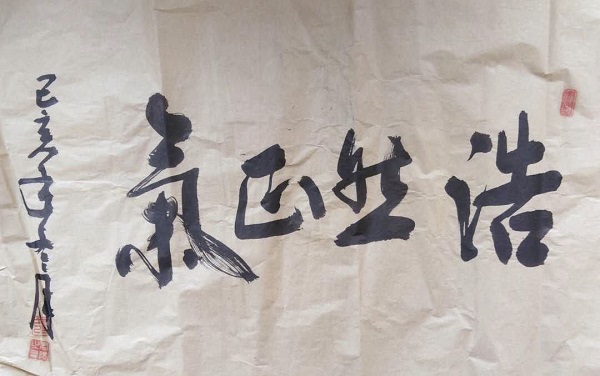 浩然正氣
己亥年